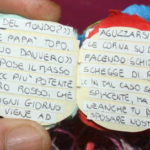 DEL MONDO?»
E PAPÀ TOPO,
DAVVERO»
SPOSE IL MASSO
È PIÙ POTENTE
ORO ROSSO, CHE
OGNI GIORNO
VIENE AD
AGUZZARSI
LE CORNA SU DI
FACENDO SCHIZ
SCHEGGE DI
IN TAL CASO SA
SPIACENTE, MA
NEANCHE TU
SPOSARE NOST